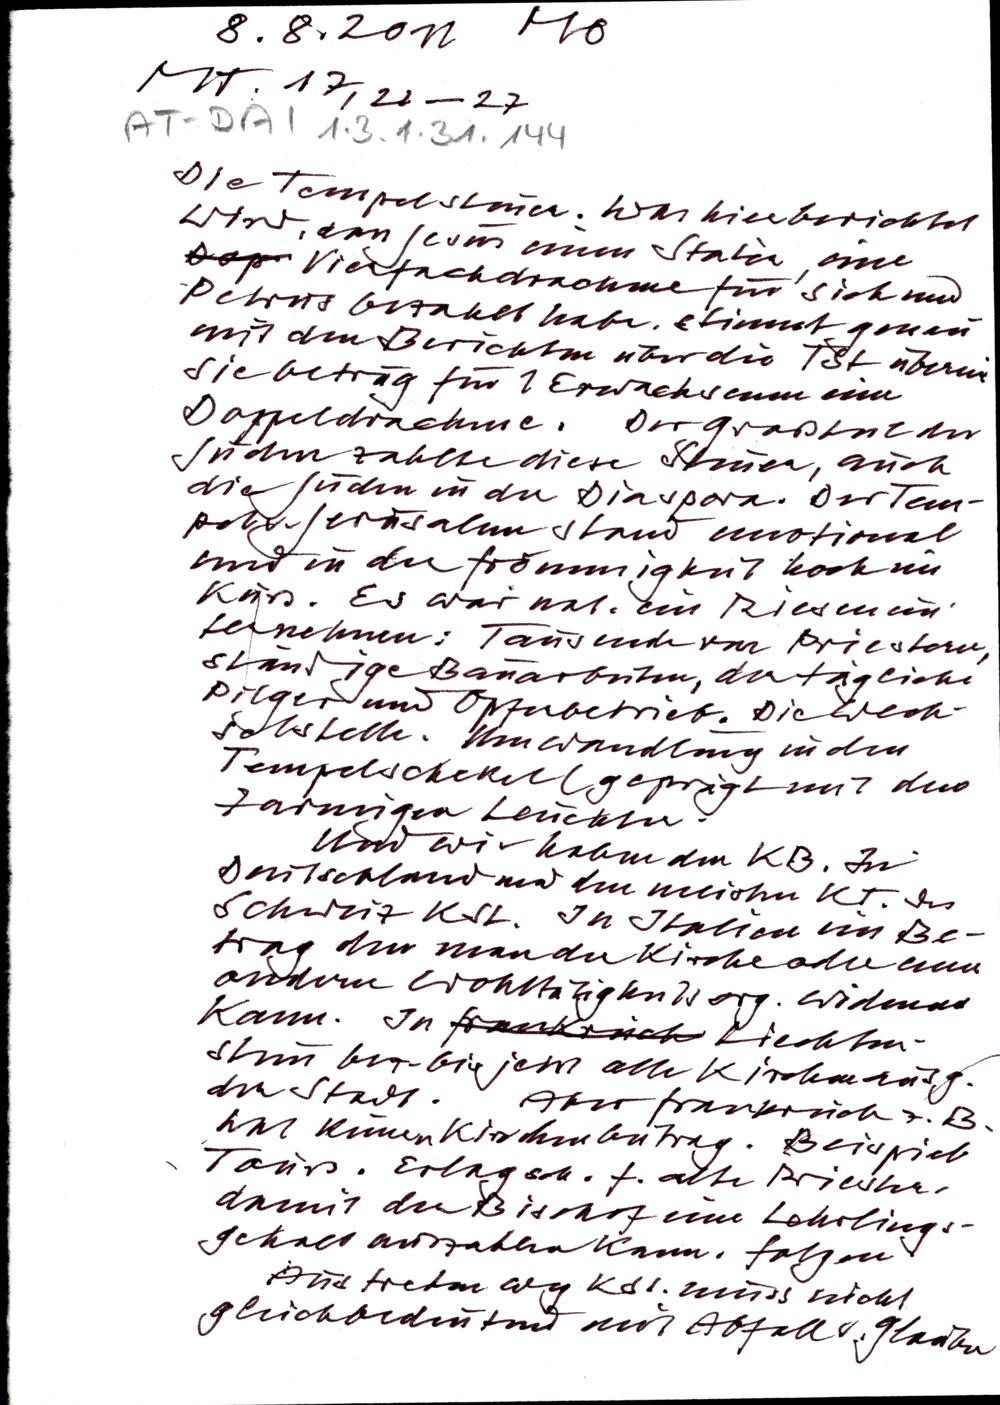 8.8.2011 MO
MT. 17,22-27
AT-DAI 1.3.1.31.144
Die Tempelsteuer. Was hier berichtet
wird, dass Jesus einen Stater, eine
Dop Vierfachdrachme für sich und
Petrus bezahlt habe. stimmt genau
mit den Berichten über die TSt überein
Sie betrug für 1 Erwachsenen eine
Doppeldrachme. Der Grossteil der
Juden zahlte diese Steuer, auch
die Juden in der Diaspora. Der Tem-
pel v. Jerusalem stand emotional
und in der Frömmigkeit hoch im
Kurs. Es war nat. ein Riesenun
ternehmen: Tausende von Priestern,
ständige Bauarbeiten, der tägliche
Pilger und Opferbetrieb. Die Wech-
selstelle. Umwandlung in den
Tempelschekel (geprägt mit dem
7armigen Leuchter.
Und wir haben den KB. In
Deutschland und den meisten KT. der
Schweiz KSt. In Italien ein Be-
trag den man der Kirche oder einer
anderen Wohltätigkeitsorg. widmen
kann. In Frankreich Liechten-
stein bez. bis jetzt alle Kirchenausg.
der Staat. Aber Frankreich z.B.
hat keinen Kirchenbeitrag. Beispiel
Tours. Erlagsch. f. alte Priester.
damit der Bischof eine Lehrlings-
gehalt auszahlen kann. Folgen
Austreten weg KSt. muss nicht
gleichbedeutend mit Abfall v. Glauben